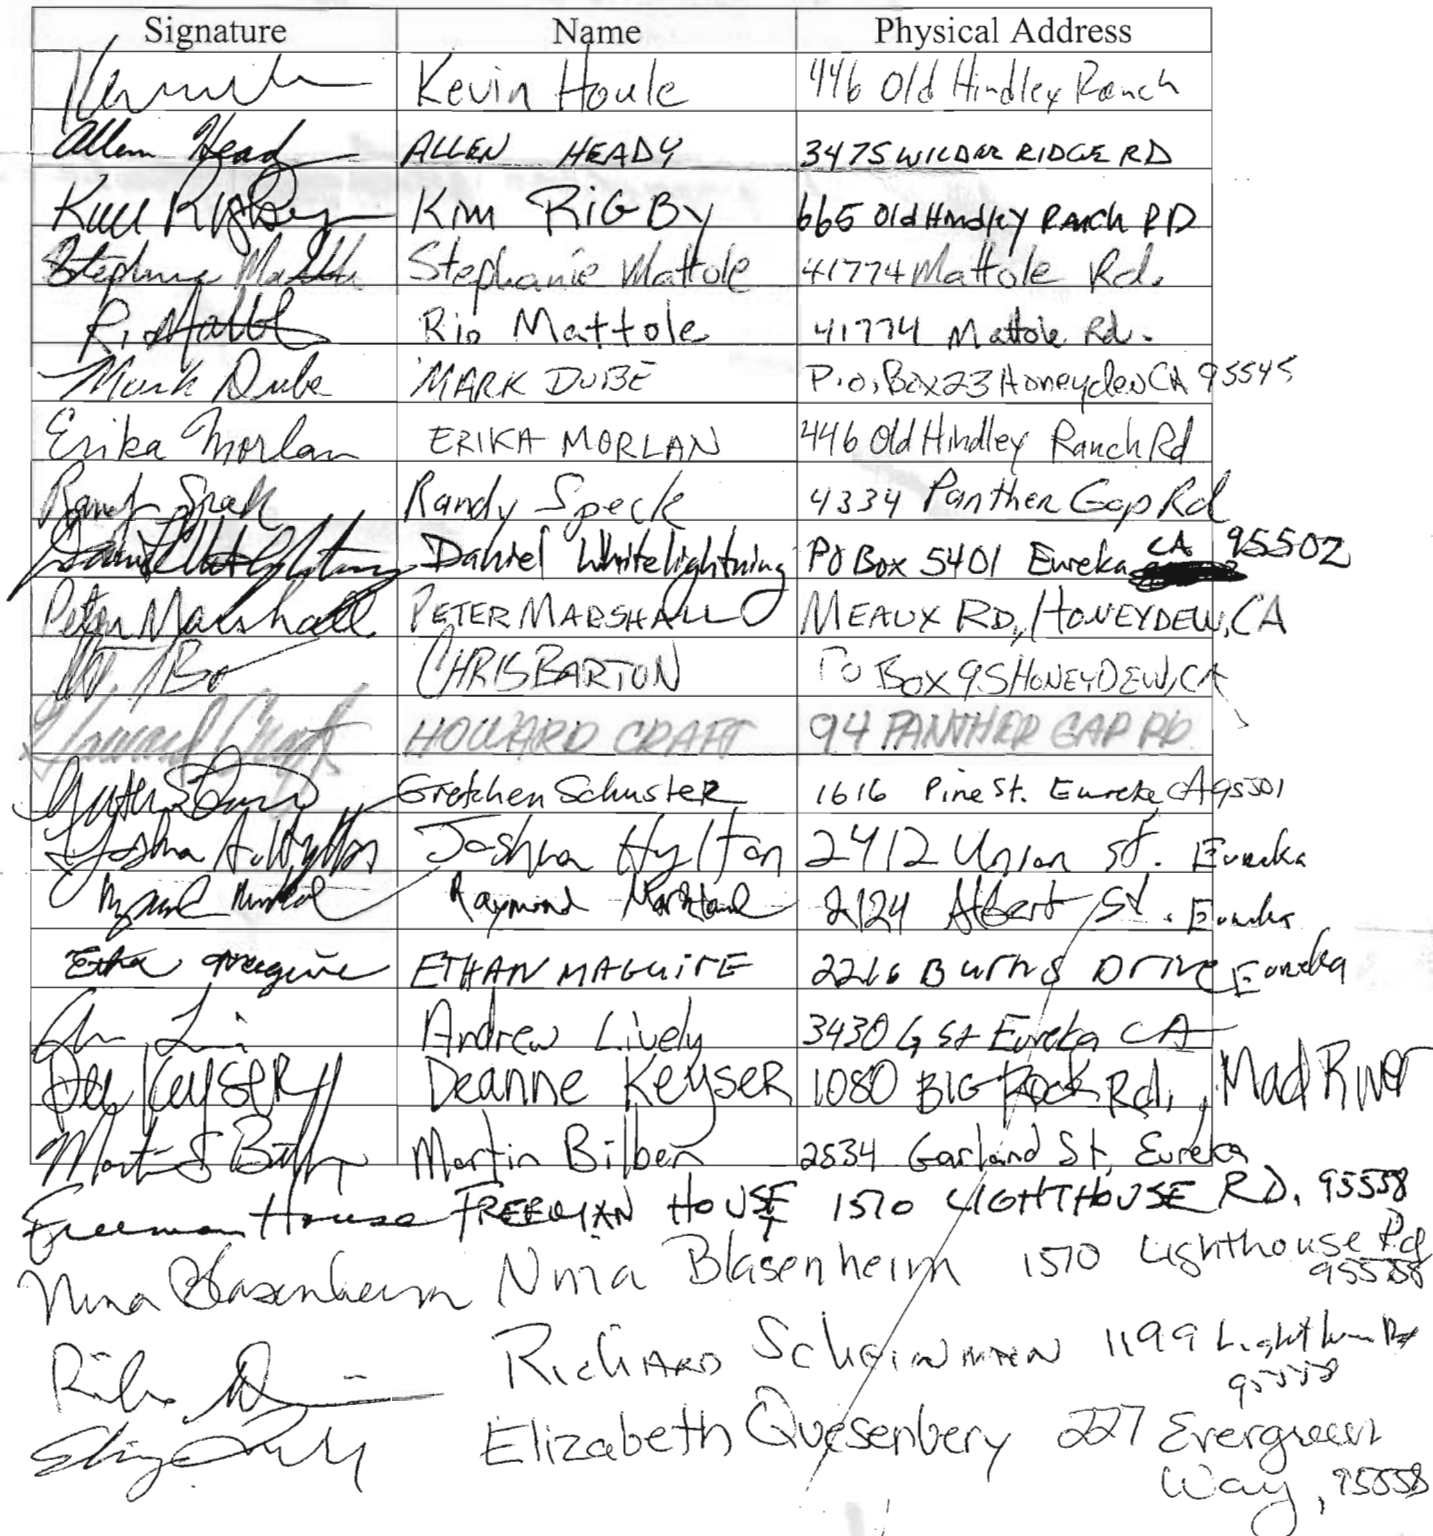 Signature Name Physical Address
Kevin Houle 446 Old Hindley Ranch
Allen Heady ALLEN HEADY 3475 WILDER RIDGE RD
Kim Rigby Kim RiGBy 665 Old Hindley Ranch RD
Stephanie Mattole Stephanie Mattole 41774 Mattole Rd.
Rio Mattole Rio Mattole 41774 Mattole Rd.
Mark Dube MARK DUBE P.O. Box 23 Honeydew CA 95545
Erika Morlan ERIKA MORLAN 446 Old Hindley Ranch Rd
Randy Speck Randy Speck 4334 Panther Gap Rd
Daniel Whitelightning Daniel Whitelightning PO Box 5401 Eureka CA 95502
Peter Marshall PETER MARSHALL MEAUX RD, HONEYDEW, CA
CHRIS BARTON PO Box 95 HONEYDEW, CA
Howard Craft HOWARD CRAFT 94 PANTHER GAP RD.
Gretchen Schuster 1616 Pine St. Eureka, CA 95501
Joshua A. Hylton Joshua Hylton 2412 Union St. Eureka
Raymond 2124 Albert St. Eureka
Ethan Maguire ETHAN MAGUIRE 2216 Burns Drive Eureka
Andrew Lively 3430 G St Eureka CA
Dee KEYSER Deanne Keyser 1080 BIG Rock Rd., Mad River
Martin Bilben 2534 Garland St, Eureka
Freeman House FREEMAN HOUSE 1570 LIGHTHOUSE RD. 95558
Nina Blasenheim Nina Blasenheim 1570 Lighthouse Rd
95558
RICHARD Scheinman 1199 Lighthouse Rd
95558
Elizabeth Quesenbery 227 Evergreen
Way, 95558